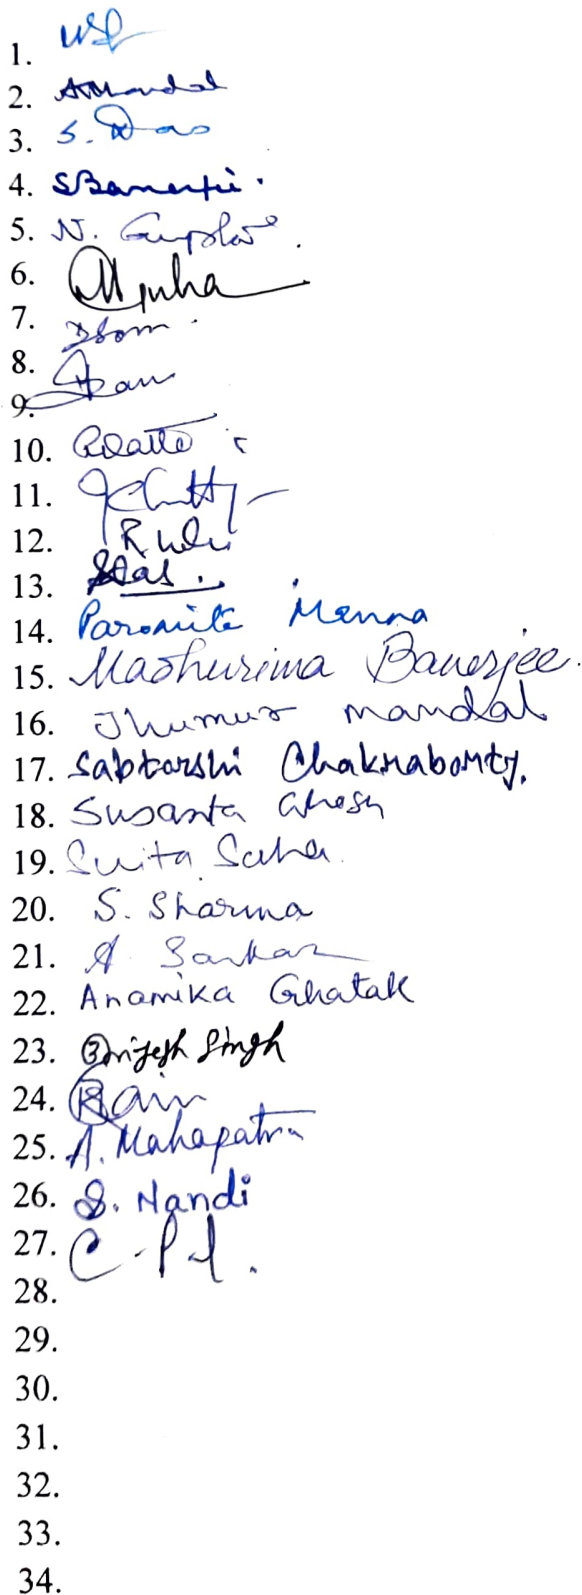 1.
2. AMandal
3. S. Das
4. SBanerjee.
5. N. Gupta
6.
7. DSom
8.
9.
10.
11.
12.
13. SDas.
14. Paromita Manna
15. Madhurima Banerjee.
16. Jhumur mandal
17. Sabtarshi Chakraborty.
18. Susanta Ghosh
19. Saha
20. S. Sharma
21. A Sarkar
22. Anamika Ghatak
23. Brijesh Singh
24.
25. A. Mahapatra
26. S. Nandi
27.
28.
29.
30.
31.
32.
33.
34.